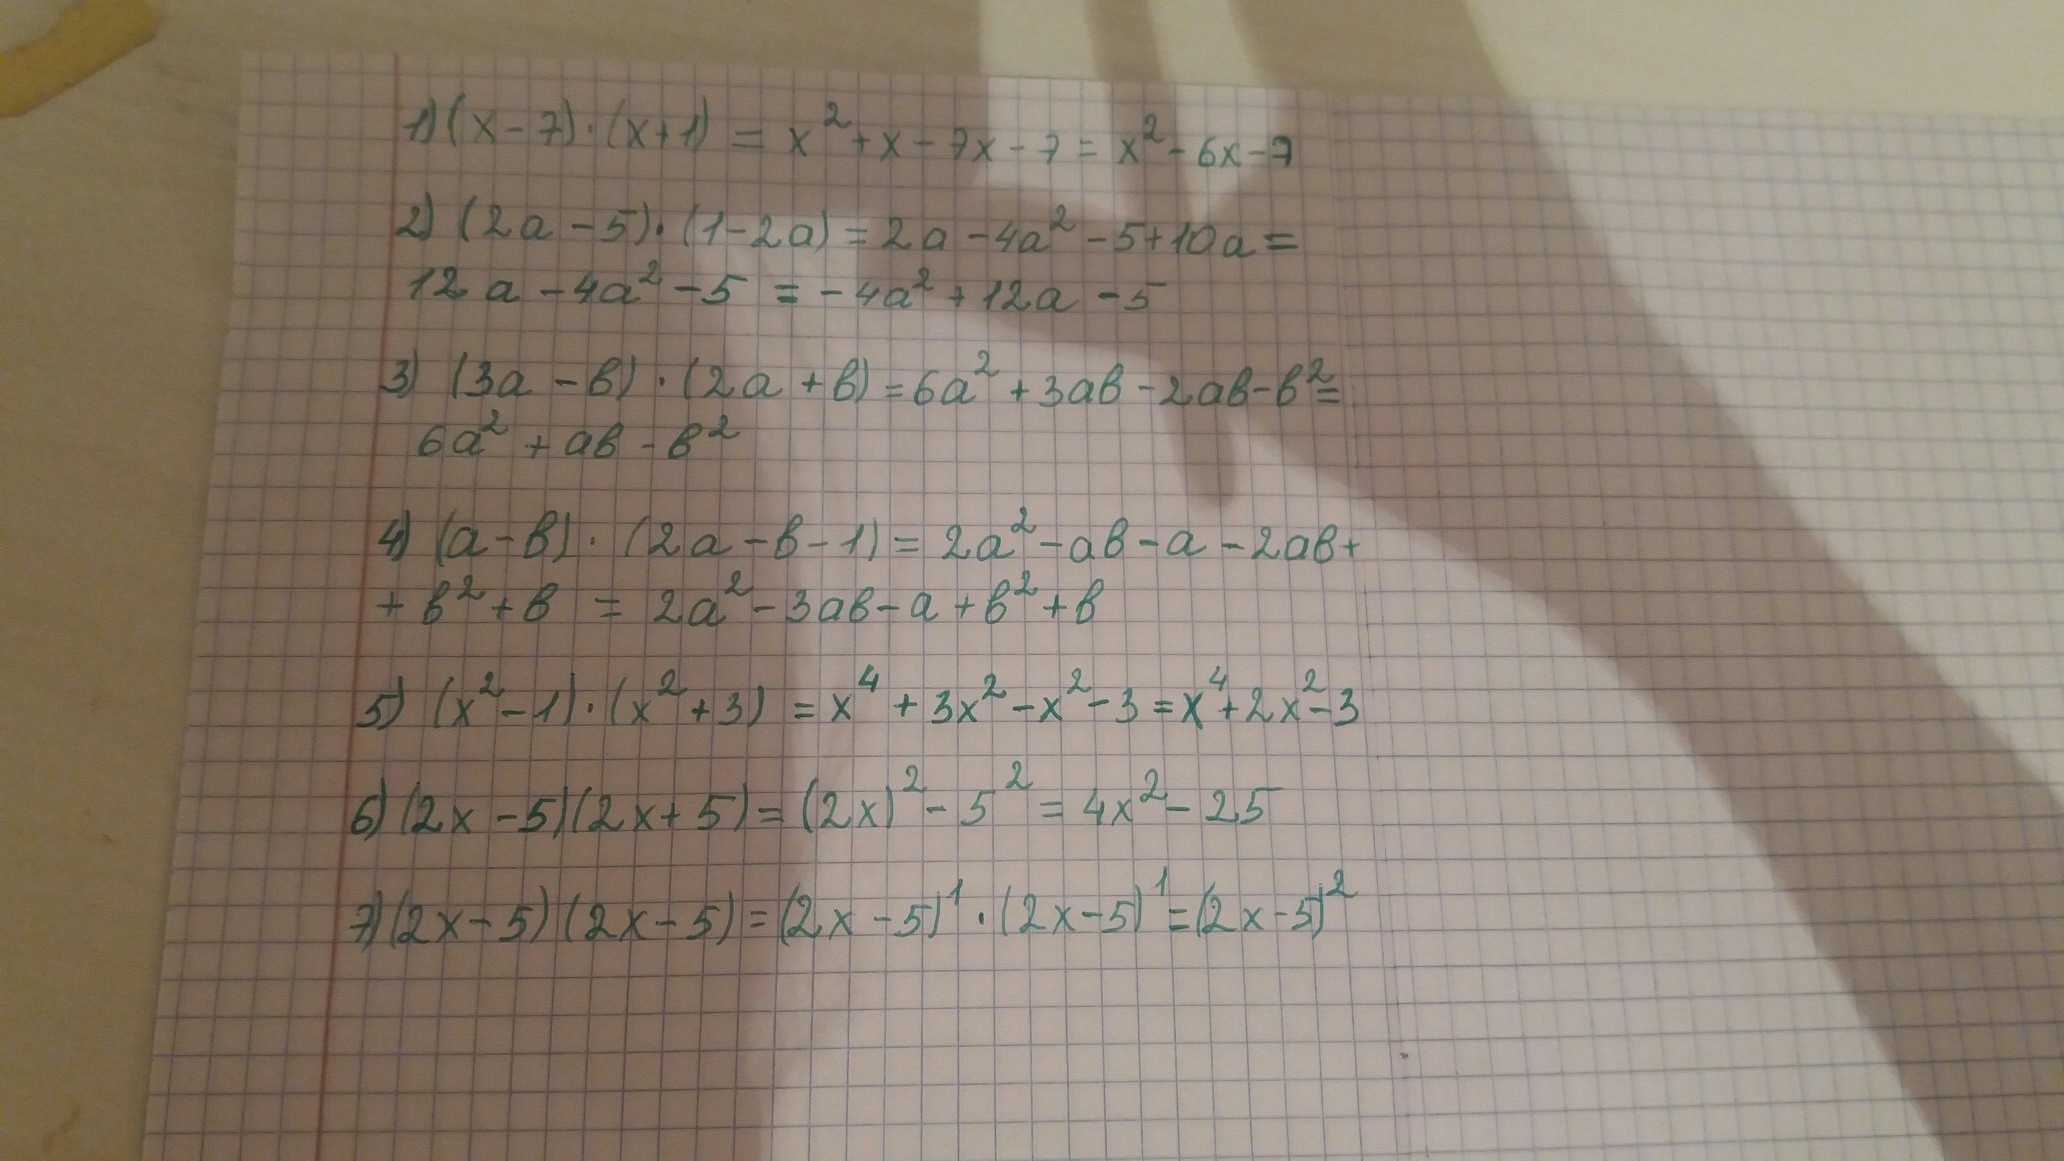 1) (x-7)·(x+1) = x²+x-7x-7 = x²-6x-7
2) (2a-5)·(1-2a) = 2a-4a²-5+10a =
12a-4a²-5 = -4a²+12a-5
3) (3a-b)·(2a+b) = 6a²+3ab-2ab-b² =
6a²+ab-b²
4) (a-b)·(2a-b-1) = 2a²-ab-a-2ab+
+b²+b = 2a²-3ab-a+b²+b
5) (x²-1)·(x²+3) = x⁴+3x²-x²-3 = x⁴+2x²-3
6) (2x-5)(2x+5) = (2x)²-5² = 4x²-25
7) (2x-5)(2x-5) = (2x-5)¹·(2x-5)¹ = (2x-5)²